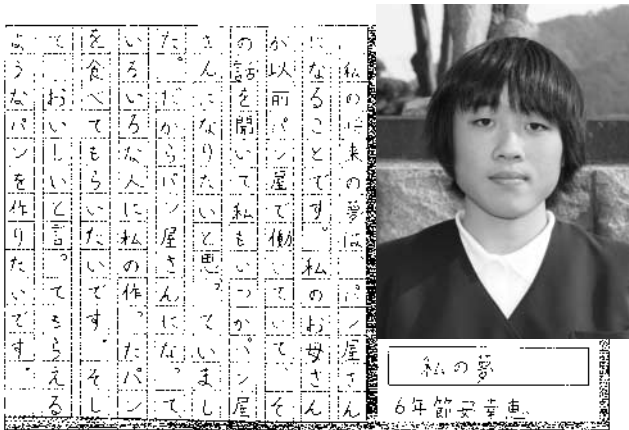 私の夢
6年 節安幸恵
私の将来の夢は、パン屋さん
になることです。私のお母さん
が以前パン屋で働いていて、そ
の話を聞いて私もいつかパン屋
さんになりたいと思っていまし
た。だからパン屋さんになって
いろいろな人に私の作ったパン
を食べてもらいたいです。そし
て、おいしいと言ってもらえる
ようなパンを作りたいです。